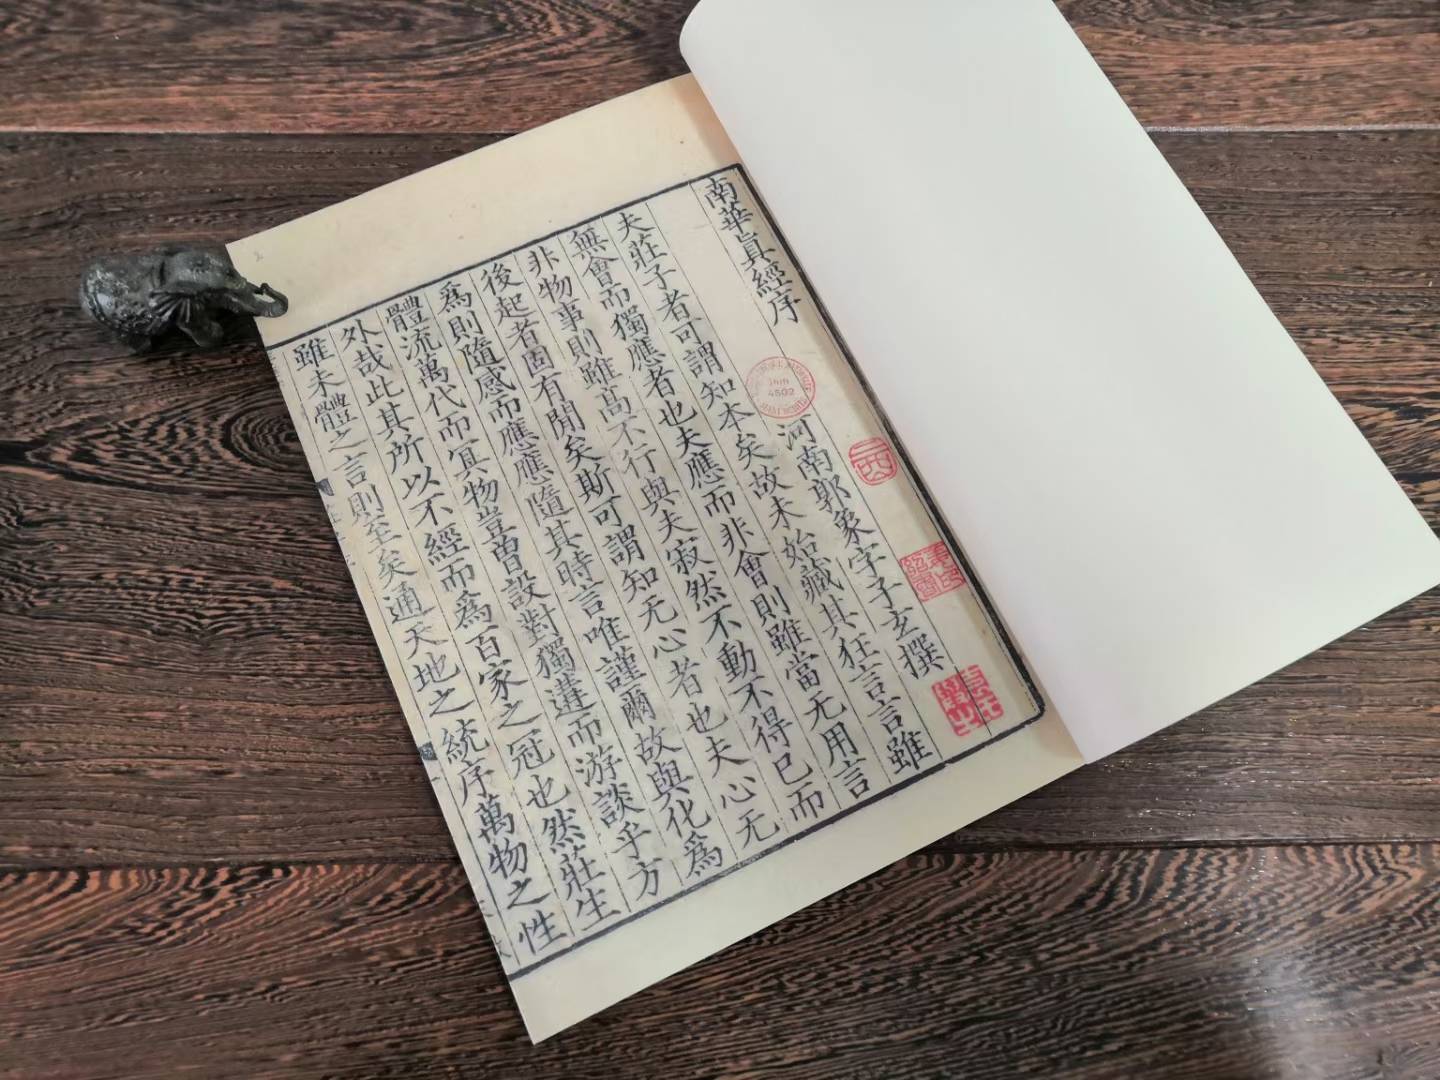 南華眞經序
河南郭象字子玄撰
夫莊子者可謂知本矣故未始藏其狂言言雖
無會而獨應者也夫應而非會則雖當无用言
非物事則雖高不行與夫寂然不動不得已而
後起者固有閒矣斯可謂知无心者也夫心无
爲則隨感而應應隨其時言唯謹爾故與化爲
體流萬代而冥物豈曽設對獨遘而游談乎方
外哉此其所以不經而爲百家之冠也然莊生
雖未體之言則至矣通天地之統序萬物之性
4502